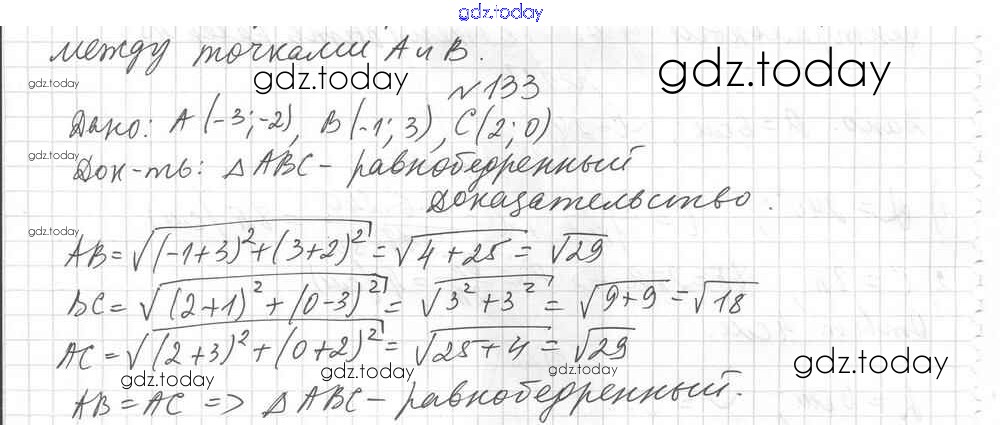 gdz.today
между точками A и B.
gdz.today gdz.today gdz.today
№133
Дано: A(-3;-2), B(-1;3), C(2;0)
gdz.today Док-ть: △ABC - равнобедренный
Доказательство.
gdz.today
AB=√((-1+3)²+(3+2)²)=√(4+25)=√29
BC=√((2+1)²+(0-3)²)=√(3²+3²)=√(9+9)=√18
AC=√((2+3)²+(0+2)²)=√(25+4)=√29
gdz.today gdz.today gdz.today gdz.today
AB=AC => △ABC-равнобедренный.